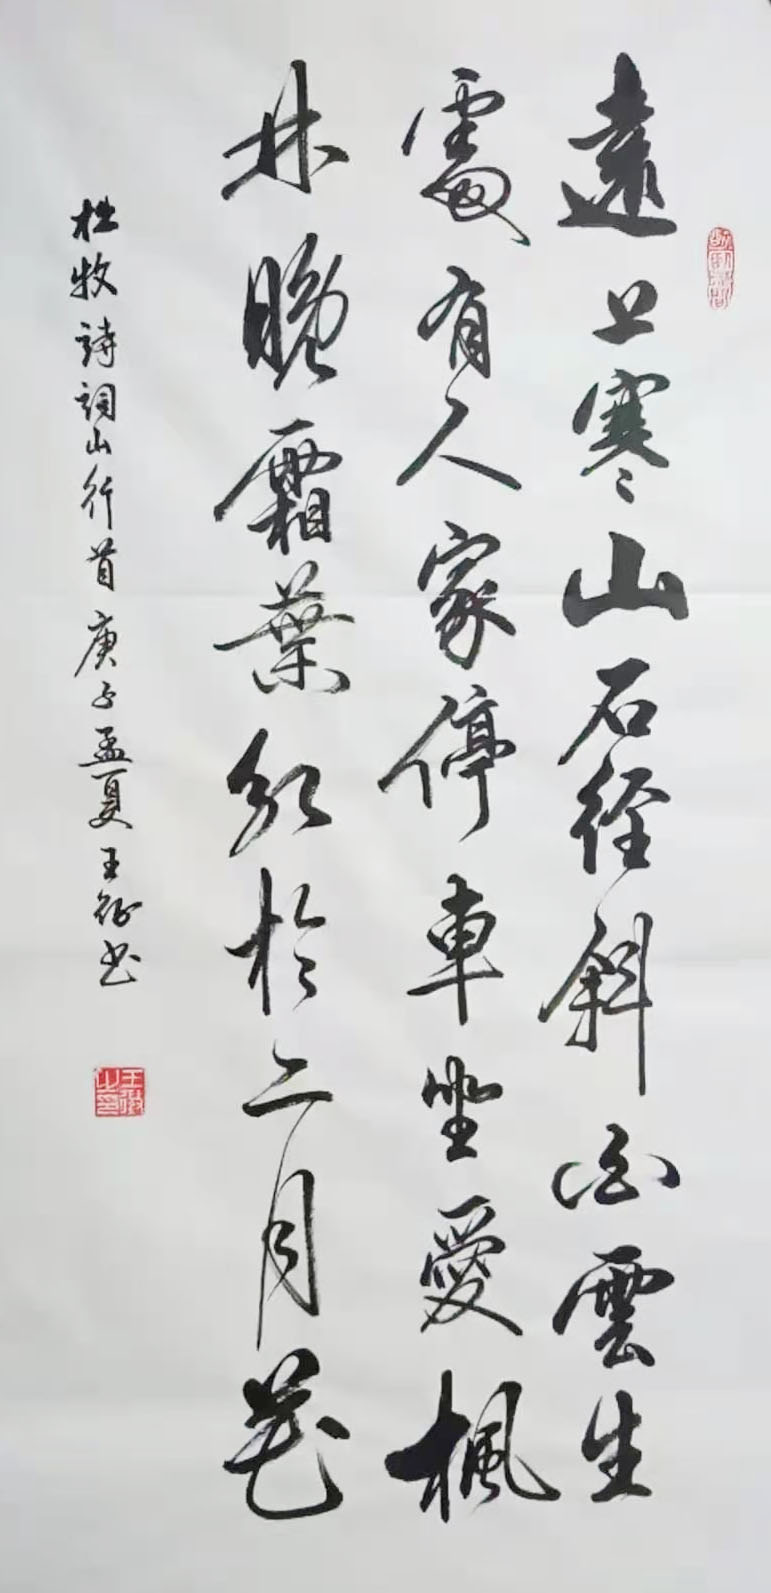 遠上寒山石径斜白雲生
處有人家停車坐愛楓
林晚霜葉红於二月花
杜牧詩詞山行首庚子孟夏王征书